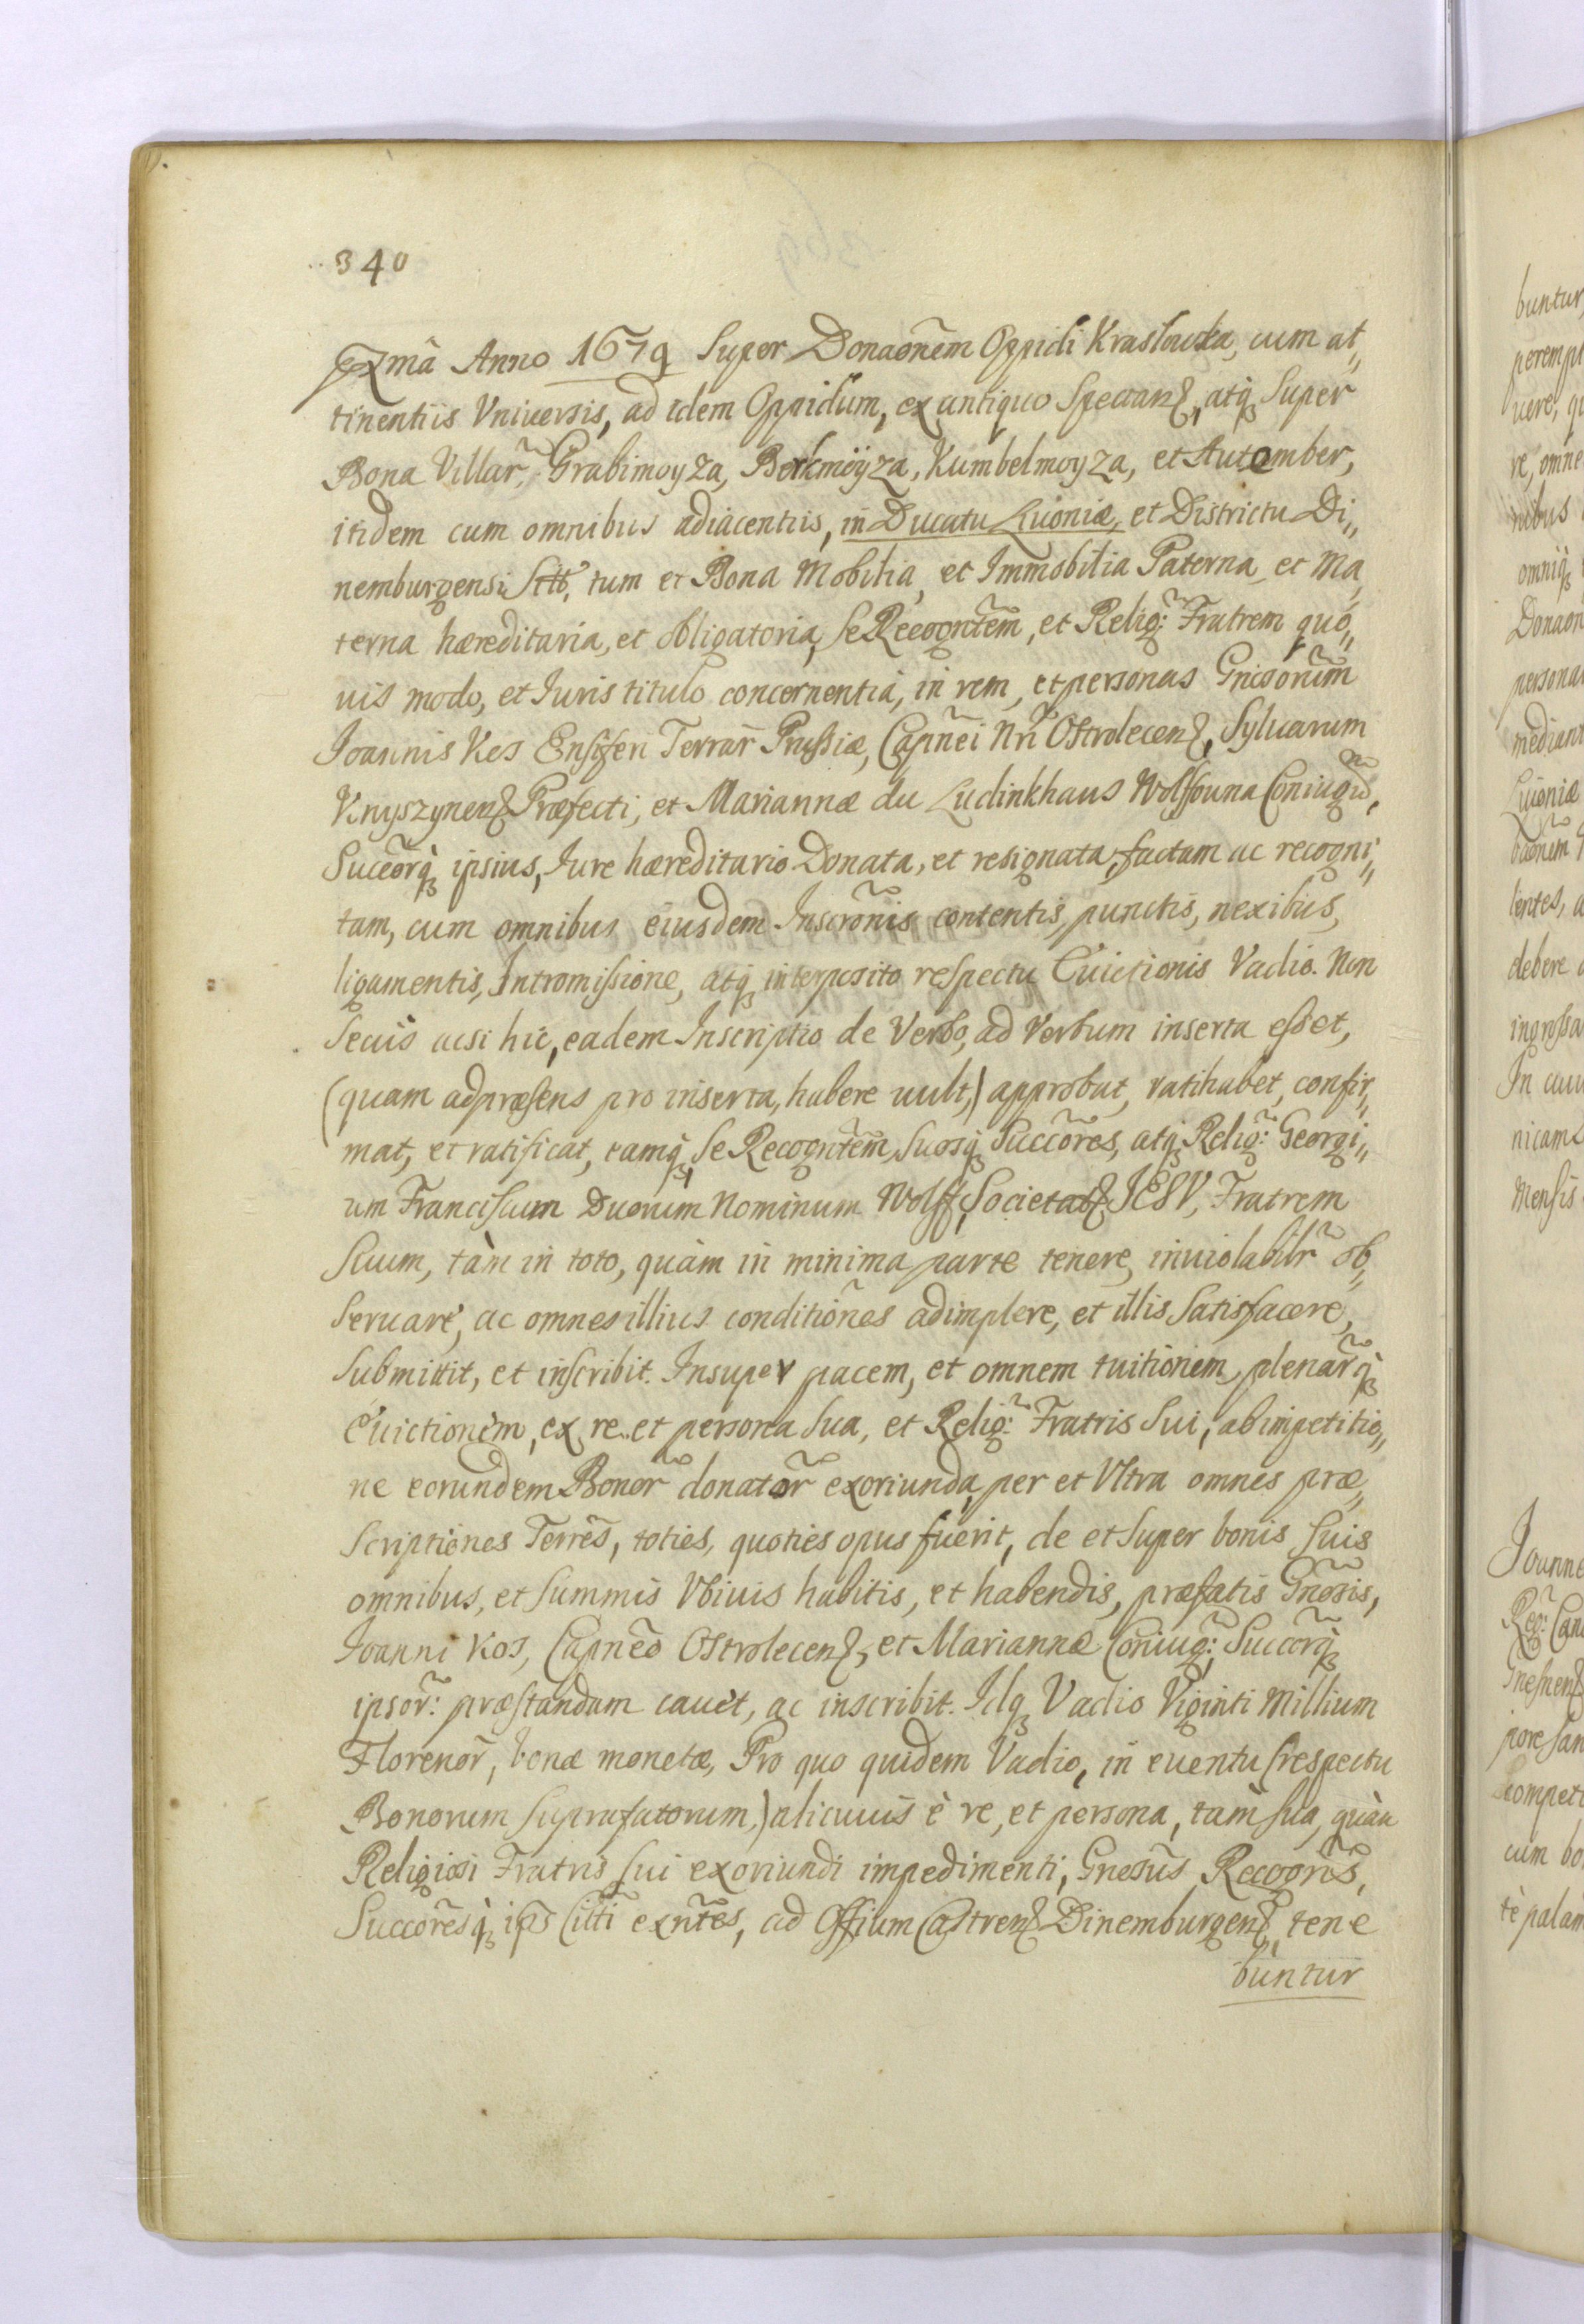 340
Pxmã Anno 1679 Super Donaõnem Oppidi Kraslawka, cum at„
tinentiis Vniuersis, ad idem Oppidum, ex antiquo Spectanꝫ, atqꝫ Super
Bona Villar̃, Grabimoyza, Berkmöyza, Kumbelmoyza, et Autember,
itidem cum omnibus adiacentiis, in Ducatu Liuoniæ, et Districtu Di„
nemburgensi Sitt̃, tum et Bona Mobilia, et Immobilia Paterna, et Ma„
terna hæreditaria, et obligatoria, Se Recogntẽm, et Relig: Fratrem quó„
uis modo, et Iuris titulo concernentia, in rem, et personas Gnĩsorum
Joannis Kos Ensiferi Terrar̃ Prussiæ, Capñei Nrĩ Ostrolecenꝫ, Syluarum
Knyszynenꝫ Præfecti, et Mariannæ du Ludinkhaus Wolffouna Coniugũ,
Succeõrqꝫ ipsius, Iure hæreditario Donata, et resignata, factam ac recogni„
tam, cum omnibus eiusdem Inscrõnis contentis, punctis, nexibus,
ligamentis, Intromissione, atqꝫ interposito respectu Euictionis Vadio. Non
Secùs acsi hic, eadem Inscriptio de Verbo, ad Verbum inserta esset,
(quam ad præsens pro inserta, habere uult,) approbat, ratihabet, confir„
mat, et ratificat, eamqꝫ Se Recogntẽm, Suosqꝫ Succõres, atqꝫ Relig: Georgi„
um Franciscum Duorum Nominum Wolff, Societatꝫ JESV, Fratrem
Suum, tàm in toto, quàm in minima parte tenere, inuiolabilr̃ ob„
seruare, ac omnes illius conditiones adimplere, et illis Satisfacere,
Submittit, et inscribit. Insuper pacem, et omnem tuitionem, plenar̃qꝫ
Euictionem, ex re et persona sua, et Relig: Fratris Sui, ab impetitio„
ne eorundem Bonor̃ donator̃ exoriunda, per et Vltra omnes præ„
scriptiones Terrẽs, toties, quoties opus fuerit, de et super bonis Suis
omnibus, et Summis Vbiuis habitis, et habendis, præfatis Gnõsis,
Joanni Kos, Capnẽo Ostrolecenꝫ, et Mariannæ Coniug:, Succorq̃ꝫ
ipsor̃: præstandam cauet, ac inscribit. Idqꝫ Vadio Viginti Millium
Florenor̃, bonæ monetæ, Pro quo quidem Vadio, in euentu (respectu
Bonorum Suprafatorum,) alicuius è re, et persona, tàm Sua, quàm
Religiosi Fratris Sui exoriundi impedimenti, Gnesũs Recogñs,
Succõresqꝫ ipŝ Citti exñtes, ad Offium Castrenꝫ Dinemburgenꝫ, tene
buntur
buntur
perempt
uere, qu
re, omne
nibus
omniqꝫ
Donaon
personas
mediant
Liuoniæ
lentes, a
debere
ingrossa
nicam
Mensis
Joanne
Reg: Can
Gnesnenꝫ
pore San
competi
cum bo
tè palam